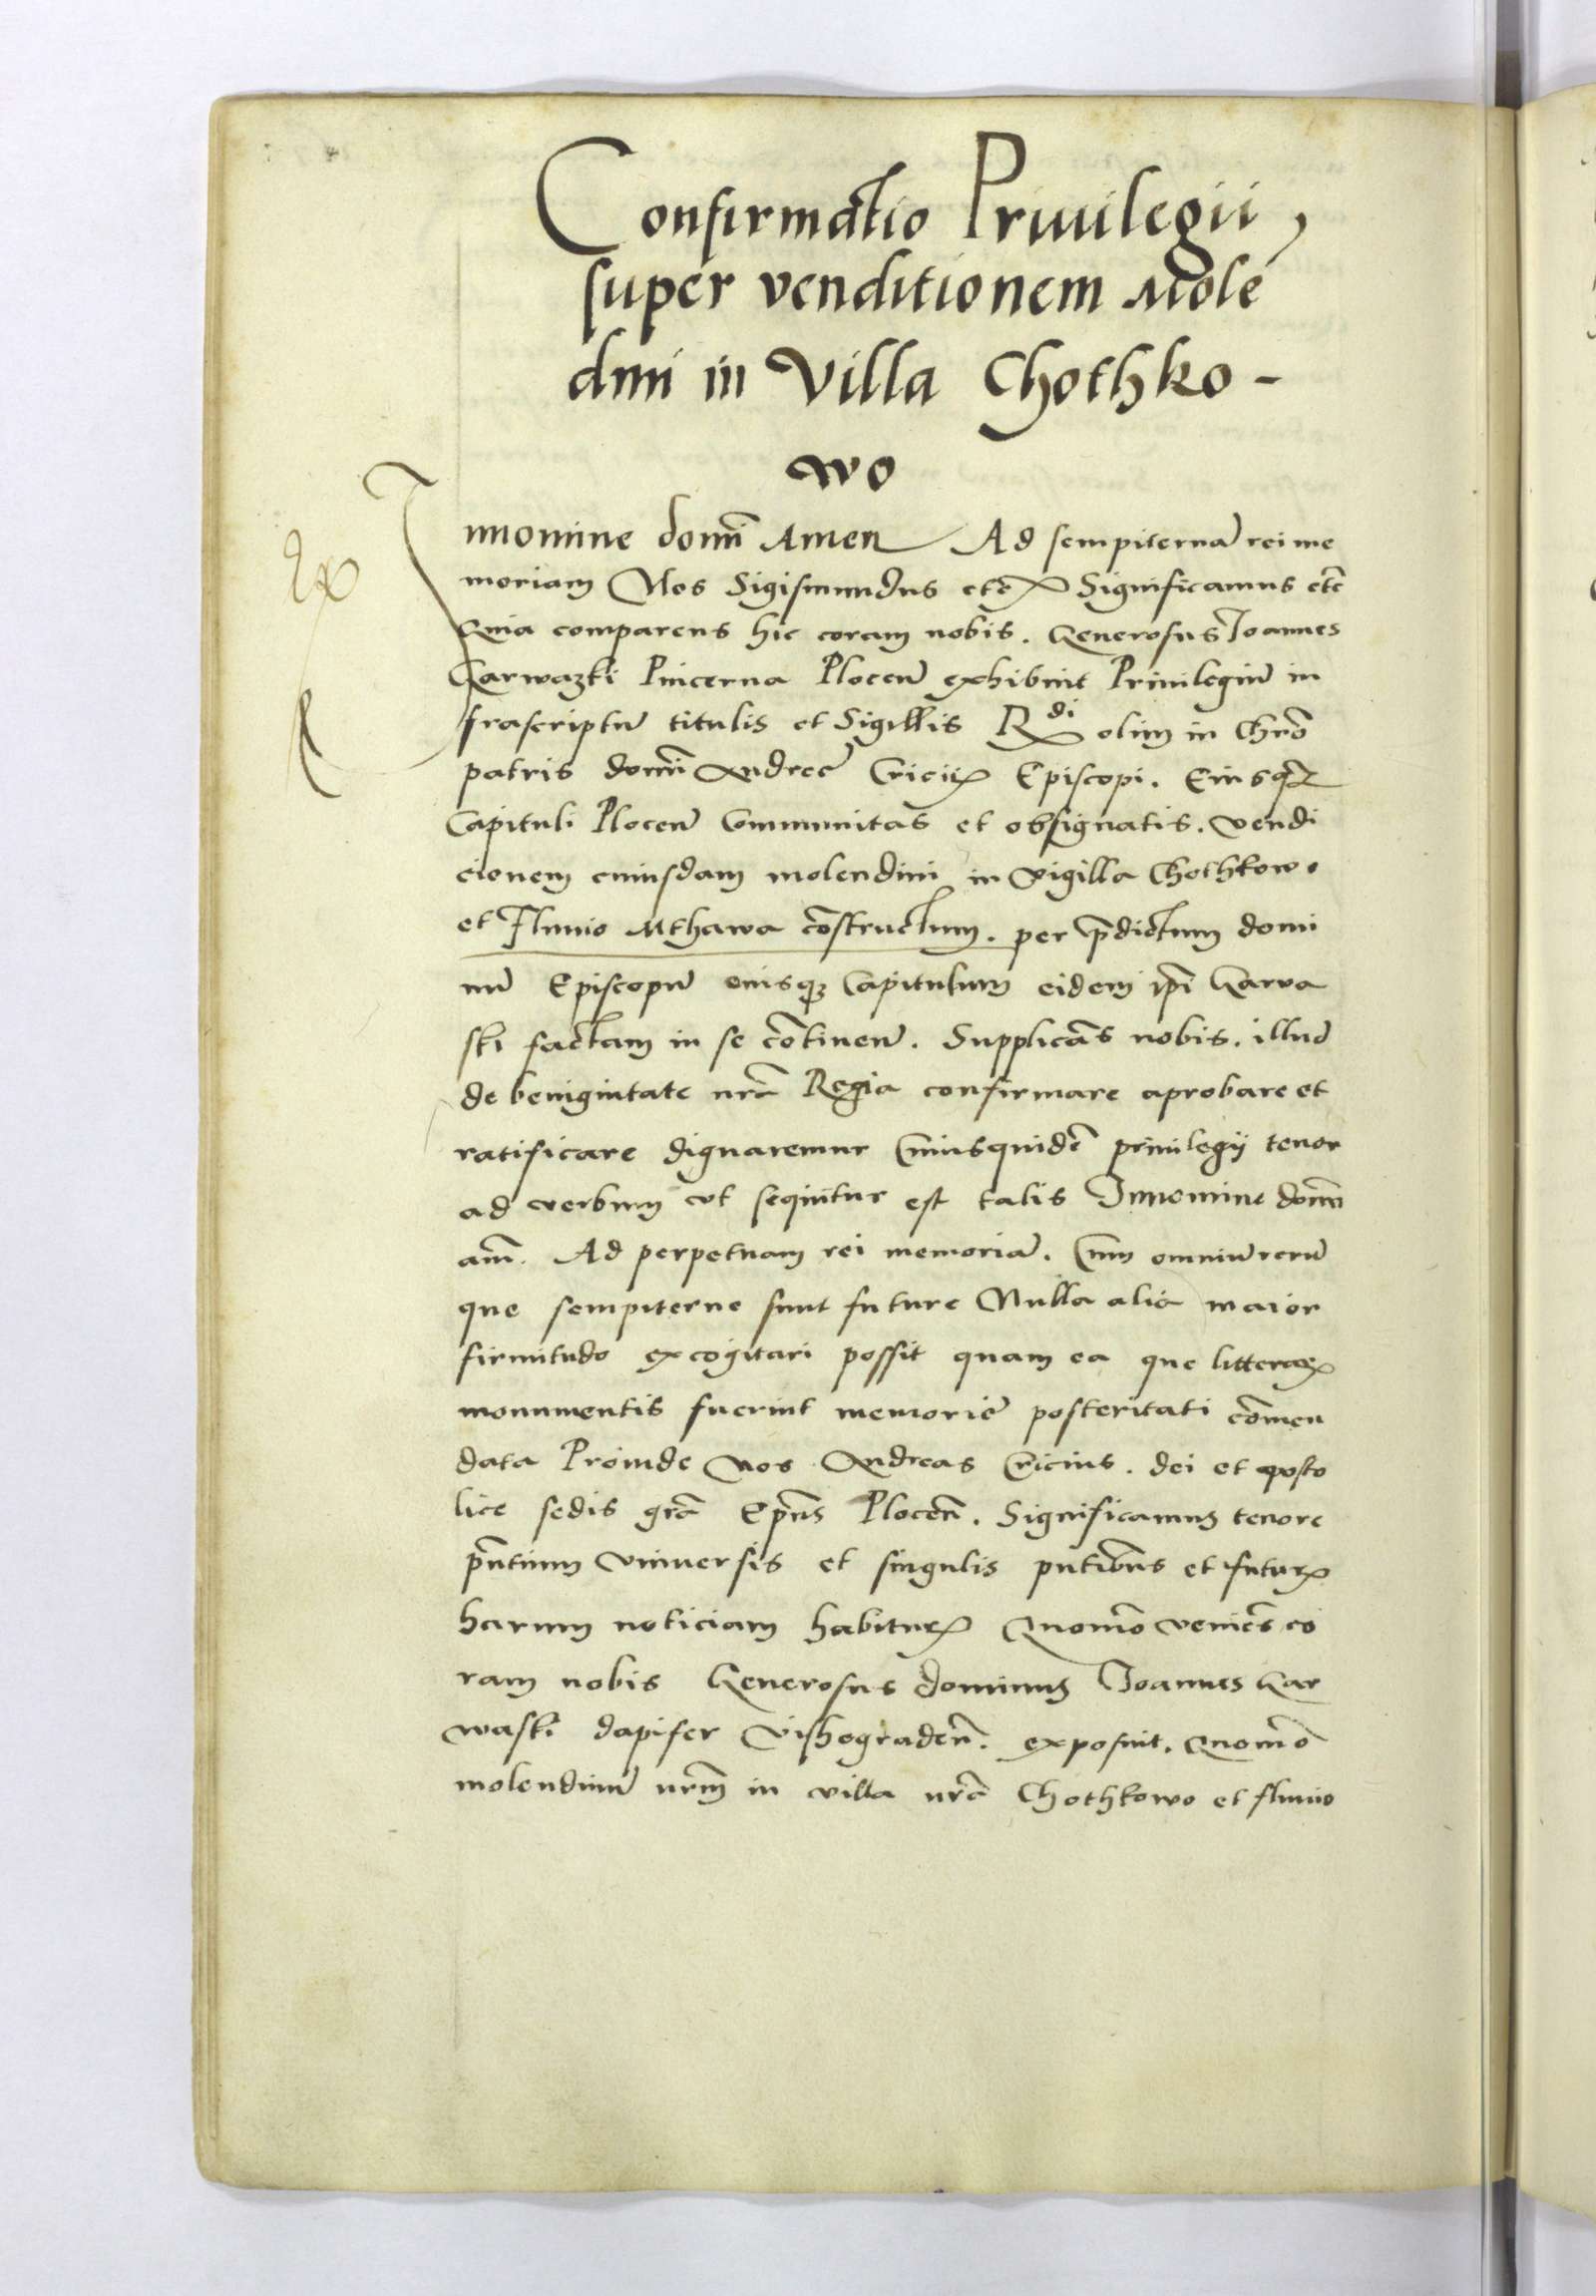 Confirmatio Priuilegii,
super venditionem Mole
dini in Villa Chothko-
wo
Innomine domī Amen Ad sempiternā rei me
moriam Nos Sigismundus etc Significamus etc
Quia comparens hic coram nobis. Generosus Joannes
Karwazki Pincerna Plocen̄ exhibuit Priuilegiū in
frascriptū titulis et Sigillis Rdi olim in Chrō
patris domī Andree Cricii Episcopi. Eiusq
Capituli Plocen̄ Communitas et obsignatis. vendi
cionem cuiusdam molendini in vigilla Chothkowo
et Fluuio Mthawa cōstructum. per p̄dictum domi
nū Episcopū eiusq3 Capitulum eidem ip̄i Karwa
ski factam in se cōtinen̄. Supplicās nobis. illud
de benignitate nrā Regia confirmare aprobare et
ratificare dignaremur Cuiusquidē priuilegij tenor
ad verbum vt sequitur est talis Innomine domī
am̄. Ad perpetuam rei memoriā. Cum omniū rerū
que sempiterne sunt future Nulla alia maior
firmitudo excogitari possit quam ea que litterarꝝ
monumentis fuerint memorie posteritati cōmen
data Proinde Nos Andreas Cricius. dei et aposto
lice sedis grā Ep̄us Plocen̄. Significamus tenore
p̄ntium vniuersis et singulis pn̄tibus et futurꝝ
harum noticiam habiturꝝ Quomō veniēs co
ram nobis Generosus dominus Joannes Kar
waski dapifer Vishegraden̄. exposuit. Quomō
molendinū nrm̄ in villa nrā Chothkowo et fluuio